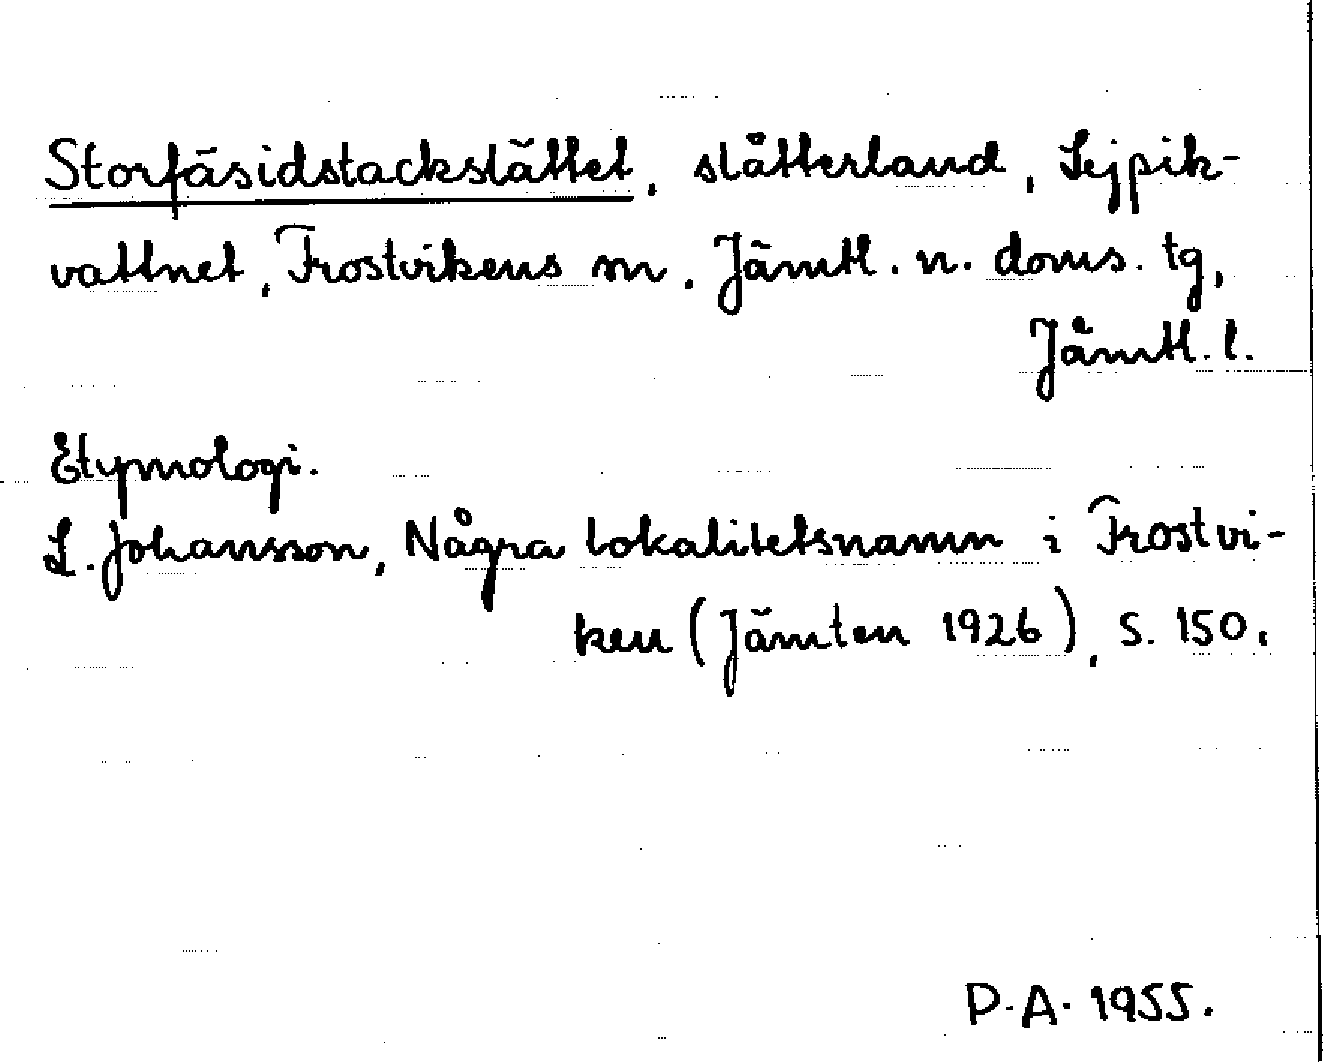 Storfäsidstackslättet, slåtterland, Lejpik-
vattnet, Frostvikens sn. Jämtl. n. doms. tg,
Jämtl. l.
Etymologi.
L. Johansson, Några lokalitetsnamn i Frostvi-
ken (Jämten 1926), s. 150.
P.A. 1955.